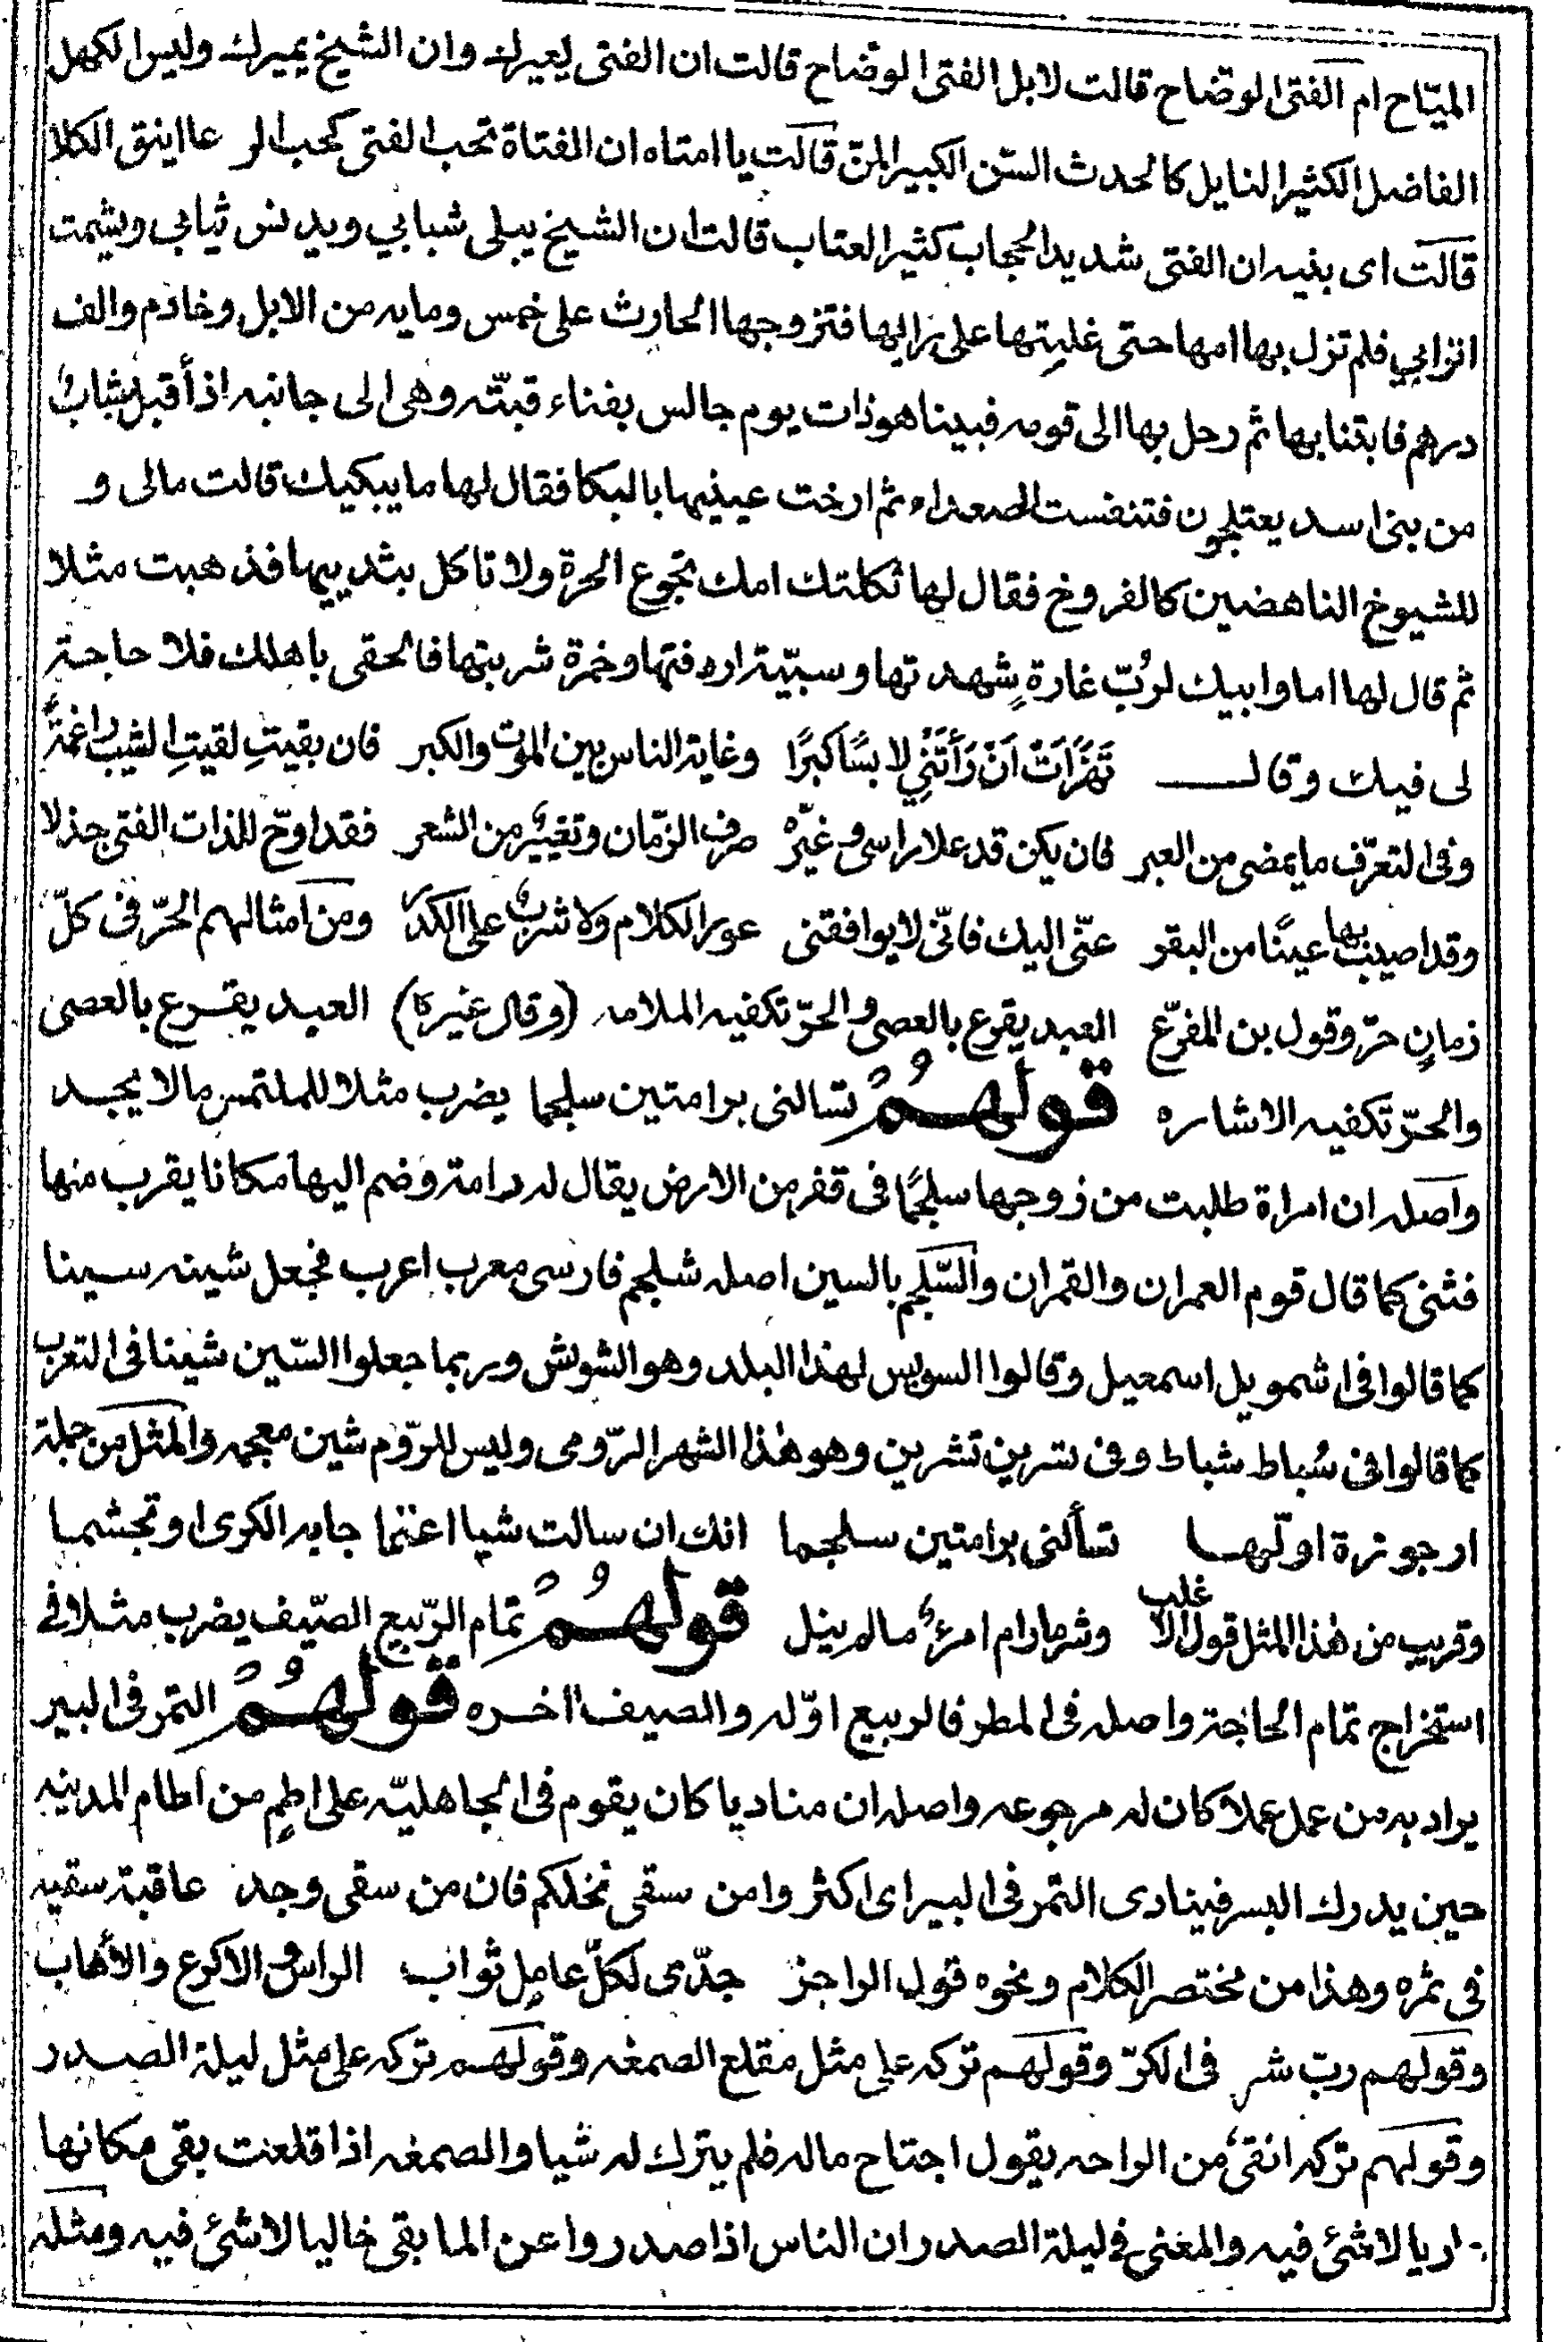 الميّاح ام الفتى الوضاح قالت لا بل الفتى الوضاح قالت ان الفتى يعيرك وان الشيخ يميرك وليس الكهل
الفاضل الكثير النايل كالحدث السن الكبير المن قالت يا امتاه ان الفتاة تحب الفتى كحب الرعا اينق الكلا
قالت اى بنيه ان الفتى شديد الحجاب كثير العتاب قالت ان الشيخ يبلى شبابي ويدنس ثيابي ويشمت
اترابي فلم تزل بها امها حتى غلبتها على رايها فتزوجها الحارث على خمس ومايه من الابل وخادم والف
درهم فابتنا بها ثم رحل بها الى قومه فبينا هو ذات يوم جالس بفناء قبّته وهى الى جانبه اذ أقبل شباب
من بنى اسد يعتلجون فتنفست الصعداء ثم ارخت عينيها بالبكا فقال لها ما يبكيك قالت مالى و
للشيوخ الناهضين كالفروخ فقال لها ثكلتك امك تجوع الحرة ولا تاكل بثدييها فذهبت مثلا
ثم قال لها اما وابيك لرُبّ غارةٍ شهدتها وسبيّة اردفتها وخمرة شربتها فالحقى باهلك فلا حاجة
لى فيك وقال تَهَزَّأَتْ اَنْ رَأَتْنِي لابسًا كبرًا وغاية الناس بين الموت والكبر فان بقيتِ لقيتِ الشيب راغمةً
وفى التعرّف ما يمضى من العبر فان يكن قد علا راسى وغيّره صرف الزّمان وتغييرٌ من الشعر فقد اوحّ للذات الفتى جذلا
وقد اصيبُ بها عينًا من البقر عنّى اليك فانّى لا يوافقنى عور الكلام ولا شربٌ على الكدر ومن امثالهم الحرّ فى كلّ
زمانٍ حرّ وقول بن المفرّغ العبد يقرع بالعصى والحرّ تكفيه الملامه (وقال غيره) العبد يقرع بالعصى
والحرّ تكفيه الاشاره قولهُمْ تسالنى برامتين سلجما يضرب مثلا للملتمس ما لا يجد
واصله ان امراة طلبت من زوجها سلجمًا فى قفر من الارض يقال له رامة وضم اليها مكانا يقرب منها
فثنى كما قال قوم العمران والقمران والسّلجم بالسين اصله شلجم فارسى معرب اعرب فجعل شينه سينا
كما قالوا فى اشمويل اسمعيل وقالوا السويس لهذا البلد وهو الشوش وربما جعلوا السّين شينا فى التعرب
كما قالوا فى سُباط شباط وفى تسرين تشرين وهو هذا الشهر الرّومى وليس للرّوم شين معجمه والمثل من جملة
ارجوزة اوّلها تسألنى برامتين سلجما انك ان سالت شيا اعنما جا به الكرى او تجشما
وقريب من هذا المثل قول الاغلب وشر ما رام امرئٌ ما لم ينل قولهُمْ تمام الرّبيع الصّيف يضرب مثلا فى
استخراج تمام الحاجة واصله فى المطر فالربيع اوّله والصيف اخره قولهُمْ التمر فى البير
يراد به من عمل عملا كان له مرجوعه واصله ان مناديا كان يقوم فى الجاهليّه على اطمٍ من اطام المدينه
حين يدرك البسر فينادى التمر فى البير اى اكثروا من سقى نخلكم فان من سقى وجد عاقبة سقيه
فى ثمره وهذا من مختصر الكلام ونحوه قول الراجز جدّى لكلّ عاملٍ ثواب الراس والاكرع والأهاب
وقولهم ربّ شر فى الكرّ وقولهم تركه على مثل مقلع الصمغه وقولهم تركه على مثل ليلة الصدر
وقولهم تركه انقى من الراحه يقول اجتاح ماله فلم يترك له شيا والصمغه اذا قلعت بقى مكانها
عاريا لا شئ فيه والمعنى فى ليلة الصدر ان الناس اذا صدروا عن الما بقى خاليا لا شئ فيه ومثله